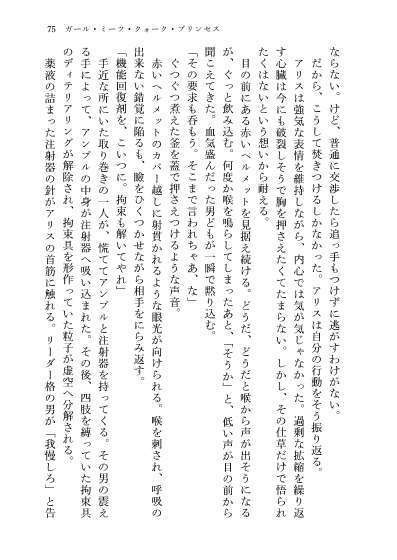 75　ガール・ミーツ・クォーク・プリンセス
ならない。けど、普通に交渉したら追っ手もつけずに逃がすわけがない。
だから、こうして焚きつけるしかなかった。アリスは自分の行動をそう振り返る。
アリスは強気な表情を維持しながら、内心では気が気じゃなかった。過剰な拡縮を繰り返
す心臓は今にも破裂しそうで胸を押さえたくてたまらない。しかし、その仕草だけで悟られ
たくはないという想いから耐える。
目の前にある赤いヘルメットを見据え続ける。どうだ、どうだと喉から声が出そうになる
が、ぐっと飲み込む。何度か喉を鳴らしてしまったあと、「そうか」と、低い声が目の前から
聞こえてきた。血気盛んだった男どもが一瞬で黙り込む。
「その要求も呑もう。そこまで言われちゃあ、な」
ぐつぐつ煮えた釜を蓋で押さえつけるような声音。
赤いヘルメットのカバー越しに射貫かれるような眼光が向けられる。喉を刺され、呼吸の
出来ない錯覚に陥るも、瞼をひくつかせながら相手をにらみ返す。
「機能回復剤を、こいつに。拘束も解いてやれ」
手近な所にいた取り巻きの一人が、慌ててアンプルと注射器を持ってくる。その男の震え
る手によって、アンプルの中身が注射器へ吸い込まれた。その後、四肢を縛っていた拘束具
のディテリアリングが解除され、拘束具を形作っていた粒子が虚空へ分解される。
薬液の詰まった注射器の針がアリスの首筋に触れる。リーダー格の男が「我慢しろ」と告